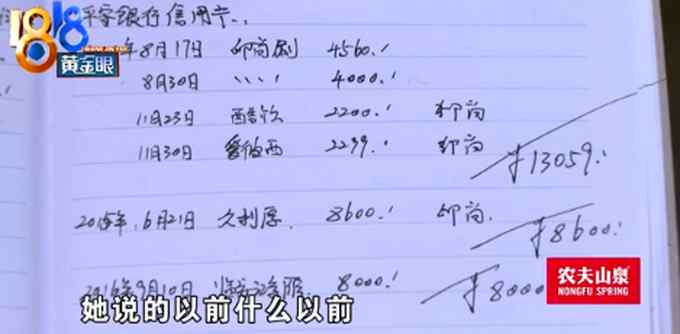 1818
黄金眼
平安银行信用卡.
年8月17日 印尚刷 4560.
8月30日 〃 〃 4000.
11月23日 2200. 印尚
11月30日 2299. 印尚
¥13059.
2015年.6月21日 久利厚. 8600. 印尚.
¥8600.
2016年9月10日 8000.
¥8000
农夫山泉
NONGFU SPRING
她说的以前什么以前